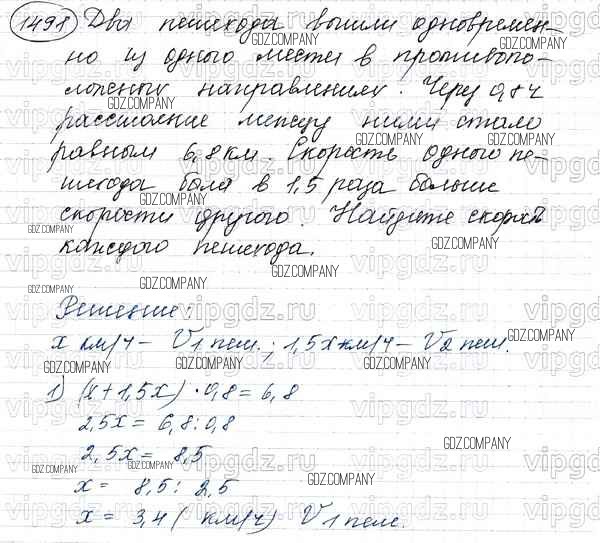 1498 Два пешехода вышли одновремен-
но из одного места в противопо-
ложных направлениях. Через 0,8 ч
расстояние между ними стало
равным 6,8 км. Скорость одного пе-
шехода была в 1,5 раза больше
скорости другого. Найдите скорость
каждого пешехода.
Решение:
x км/ч – V1 пеш.; 1,5x км/ч – V2 пеш.
1) (x + 1,5x) · 0,8 = 6,8
2,5x = 6,8 : 0,8
2,5x = 8,5
x = 8,5 : 2,5
x = 3,4 (км/ч) V1 пеш.